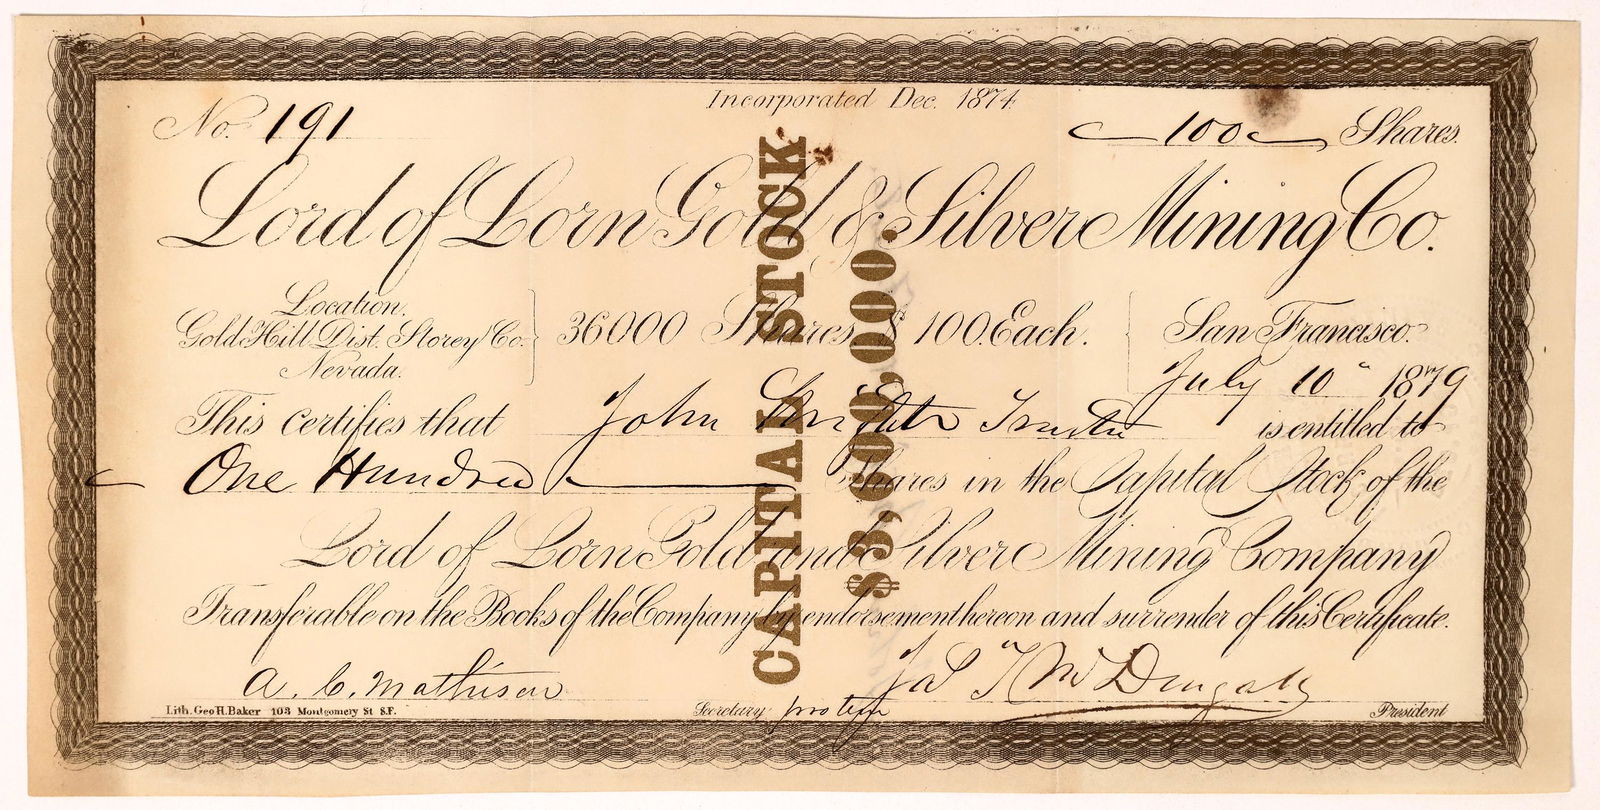 Incorporated Dec. 1874
No. 191
100 Shares.
Lord of Lorn Gold & Silver Mining Co.
Location.
Gold Hill Dist. Storey Co.
Nevada.
36000 Shares $100. Each.
San Francisco.
July 10" 1879
This certifies that John Trustee is entitled to
One Hundred Shares in the Capital Stock of the
Lord of Lorn Gold and Silver Mining Company
Transferable on the Books of the Company by endorsement hereon and surrender of this Certificate.
A. C. Mathison
Secretary pro tem
President
Lith. Geo H. Baker 103 Montgomery St S.F.
CAPITAL STOCK
$3,600,000.